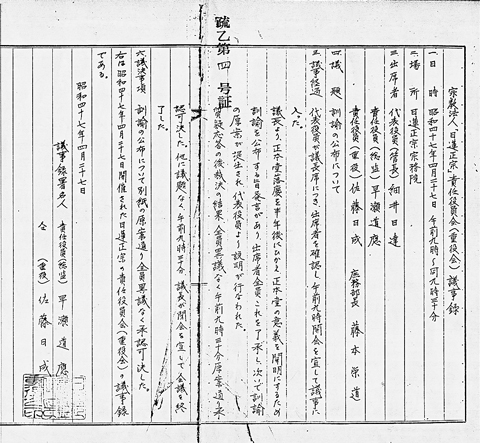 疏乙第四号証
宗教法人「日蓮正宗」責任役員会(重役会)議事録
一 日 時 昭和四十七年四月二十七日 午前九時〜同九時三十分
二 場 所 日蓮正宗宗務院
三 出席者 代表役員(管長)細井日達
責任役員(総監)早瀬道應
責任役員(重役)佐藤日成 庶務部長 藤本栄道
四 議 題 訓諭の公布について
五 議事経過 代表役員が議長席につき、出席者を確認し、午前九時開会を宣して議事に
入った。
議長より正本堂落慶を半年後にひかえ正本堂の意義を闡明にするため
訓諭を公布する旨発言があり、出席者全員これを了承し、次いで訓諭
の原案が提出され代表役員より説明が行なわれた。
質疑応答の後裁決の結果、全員異議なく午前九時三十分原案通り承
認可決した。他に議題なく、午前九時三十分、議長が閉会を宣して会議を終
了した。
六 議決事項 訓諭の公布について別紙の原案通り全員異議なく承認可決した。
右は昭和四十七年四月二十七日開催された日蓮正宗の責任役員会(重役会)の議事録
である。
昭和四十七年四月二十七日
議事録署名人 責任役員(総監)早瀬道應
仝 (重役)佐藤日成